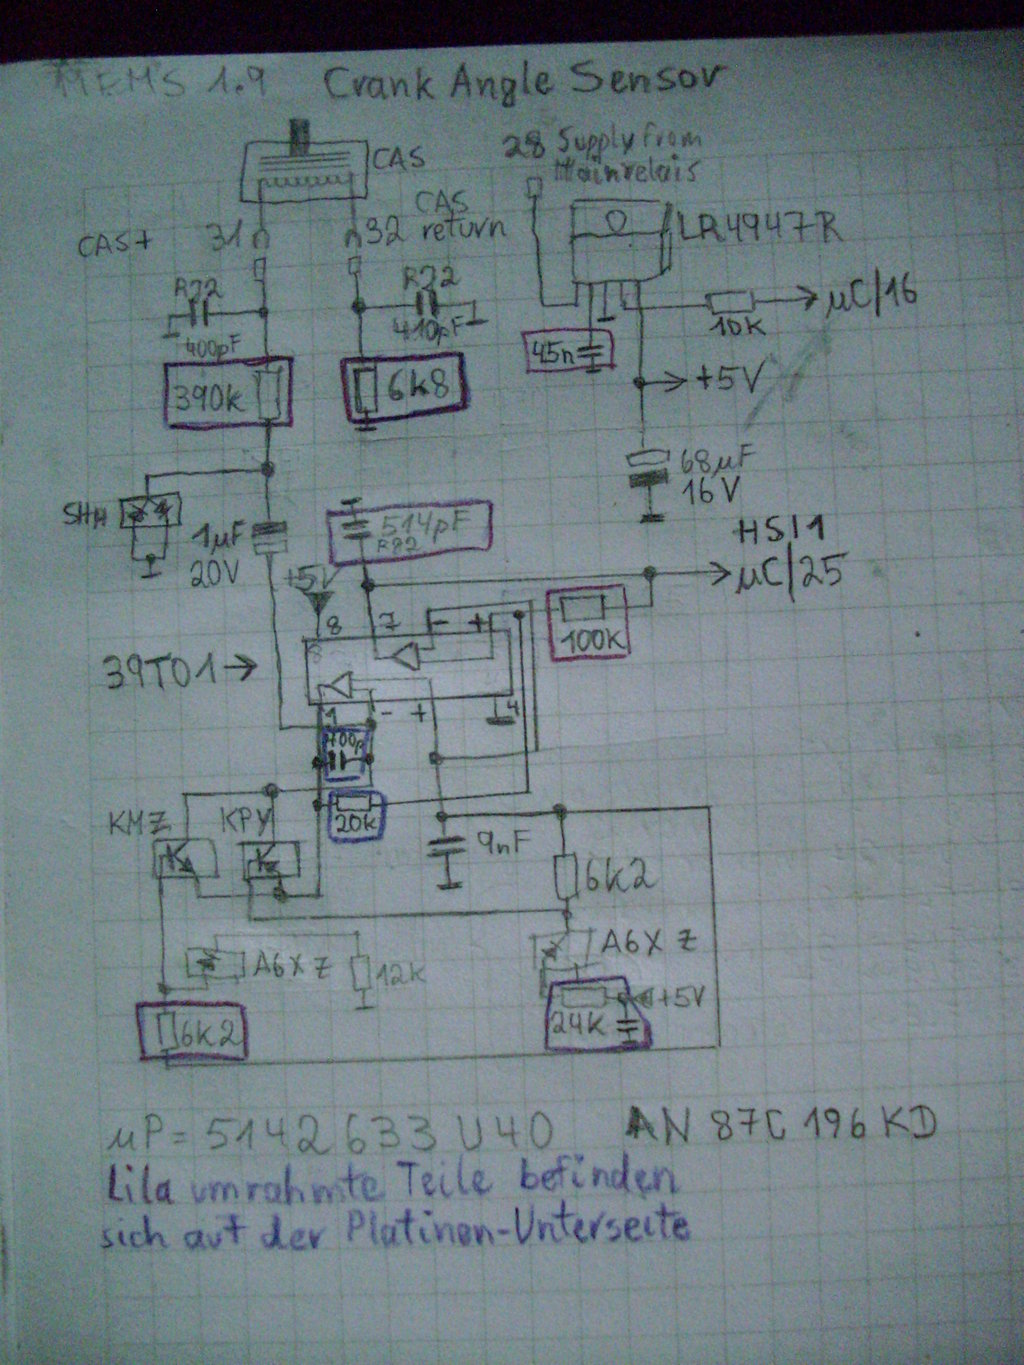 MEMS 1.9 Crank Angle Sensor
28 Supply from
Mainrelais
CAS
CAS+ 31
32 CAS
return
LR4947R
R22
400pF
R22
410pF
10K
µC/16
390k
6k8
45n
+5V
68µF
16V
SHH
1µF
20V
514pF
R22
HSI1
µC/25
+5V
8 7 - +
100K
39T01→
1 - + 4
400p
20k
KMZ KPY
9nF
6k2
A6XZ
12k
A6XZ
+5V
24K
6k2
µP= 5142633U40 AN 87C196KD
Lila umrahmte Teile befinden
sich auf der Platinen-Unterseite